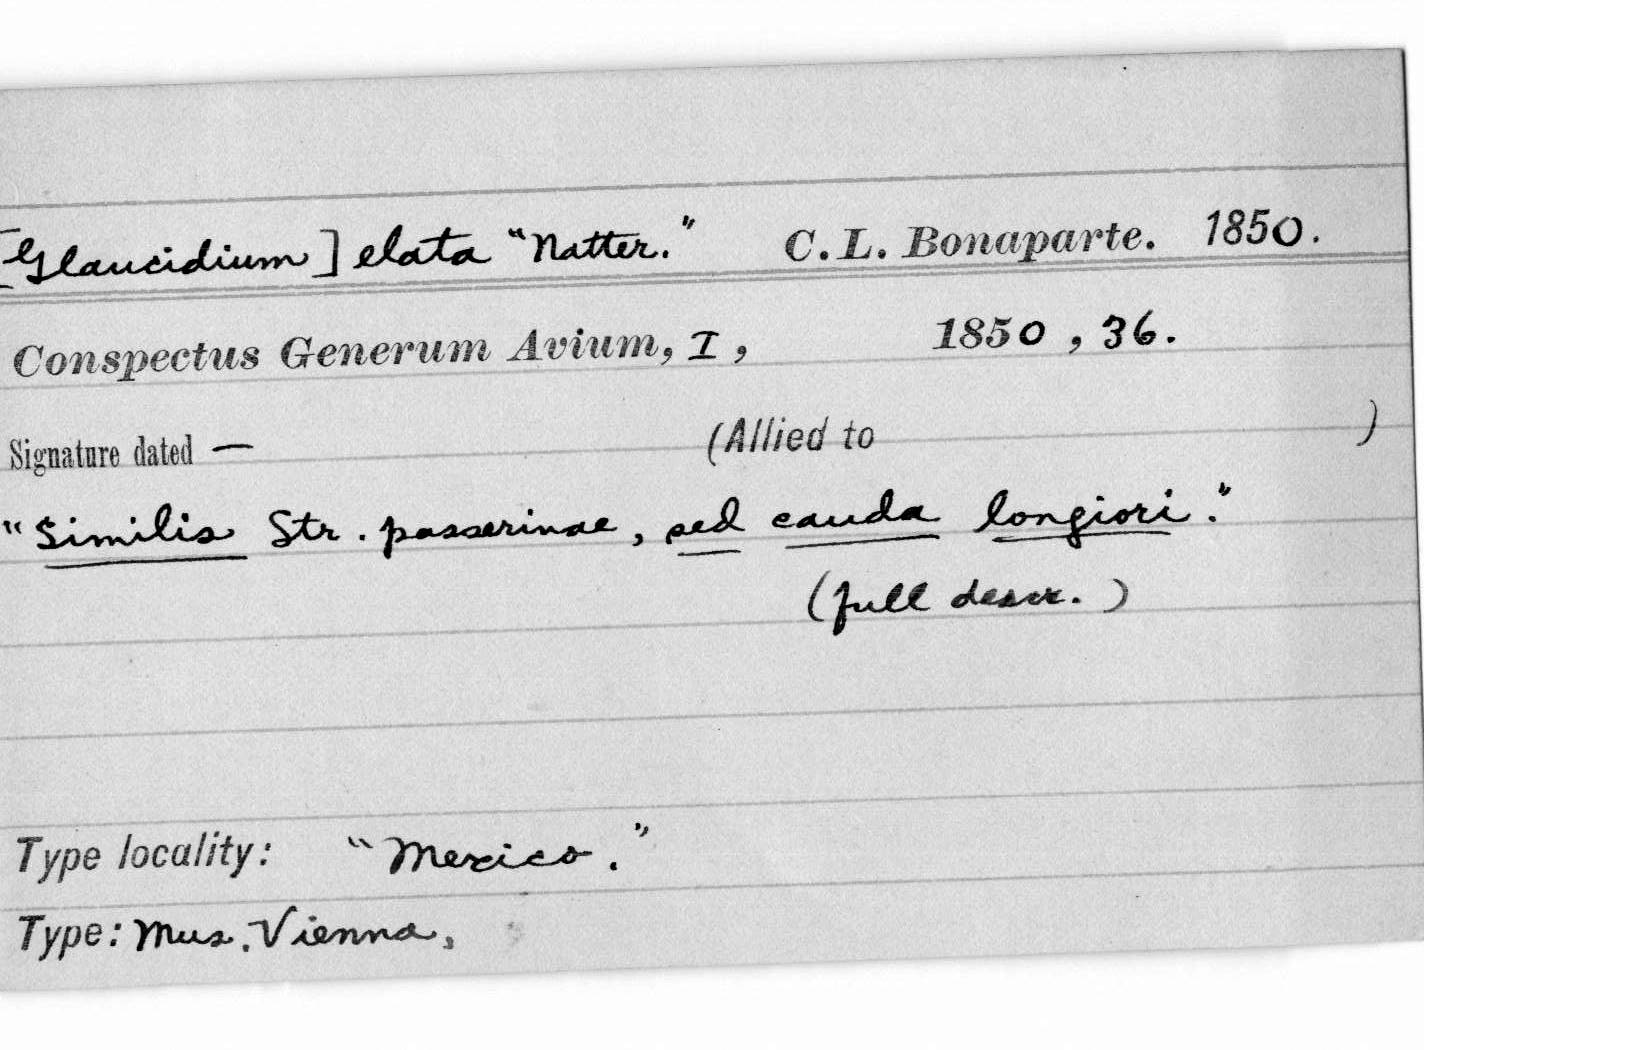 [Glaucidium] elata "Natter." C. L. Bonaparte. 1850.
Conspectus Generum Avium, I, 1850, 36.
Signature dated — (Allied to )
"Similis Str. passerinae, sed cauda longiori."
(full descr.)
Type locality: "Mexico."
Type: Mus. Vienna,